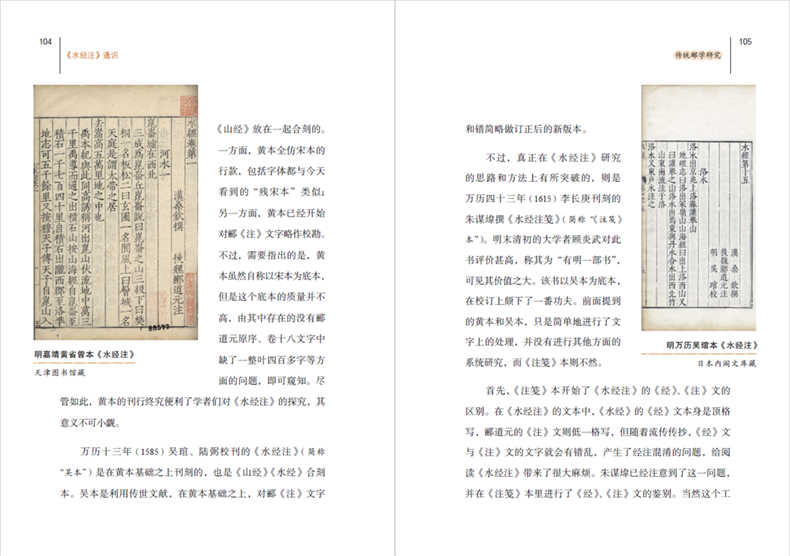 104
《水经注》通识
水經卷第一
河水一
漢桑欽撰
後魏酈道元注
崑崙墟在西北
三成爲崑崙丘崑崙說曰崑崙之山三級下曰樊
桐一名板松二曰玄圃一名閬風上曰層城一名
天庭是謂太帝之居
去嵩高五萬里地之中也
禹本紀與此同高誘稱河出崑山伏流地中萬三
千里禹導而通之出積石山按山海經自崑崙至
積石一千七百四十里自積石出隴西郡至洛準
地志可五千餘里又按穆天子傳天子自崑山入
88577
明嘉靖黄省曾本《水经注》
天津图书馆藏
《山经》放在一起合刻的。
一方面，黄本全仿宋本的
行款，包括字体都与今天
看到的“残宋本”类似；
另一方面，黄本已经开始
对郦《注》文字略作校勘。
不过，需要指出的是，黄
本虽然自称以宋本为底本，
但是这个底本的质量并不
高，由其中存在的没有郦
道元原序、卷十八文字中
缺了一整叶四百多字等方
面的问题，即可窥知。尽
管如此，黄本的刊行终究便利了学者们对《水经注》的探究，其
意义不可小觑。
万历十三年（1585）吴琯、陆弼校刊的《水经注》（简称
“吴本”）是在黄本基础之上刊刻的，也是《山经》《水经》合刻
本。吴本是利用传世文献，在黄本基础之上，对郦《注》文字
105
传统郦学研究
和错简略做订正后的新版本。
不过，真正在《水经注》研究
的思路和方法上有所突破的，则是
万历四十三年（1615）李长庚刊刻的
朱谋㙔撰《水经注笺》（简称“《注笺》
本”）。明末清初的大学者顾炎武对此
书评价甚高，称其为“有明一部书”，
可见其价值之大。该书以吴本为底本，
在校订上颇下了一番功夫。前面提到
的黄本和吴本，只是简单地进行了文
字上的处理，并没有进行其他方面的
系统研究，而《注笺》本则不然。
水經第十五
漢 桑欽 撰
後魏酈道元注
明 吳琯 校
洛水
洛水出京兆上洛縣讙舉山
地理志曰洛出冢嶺山山海經曰出上洛西山又
曰讙舉之山洛水出焉東與丹水合水出西北竹
山東南流注于洛
洛水又東尸水注之
明万历吴琯本《水经注》
日本内阁文库藏
首先，《注笺》本开始了《水经注》的《经》、《注》文的
区别。在《水经注》的文本中，《水经》的《经》文本身是顶格
写，郦道元的《注》文则低一格写，但随着流传传抄，《经》文
与《注》文的文字就会有错乱，产生了经注混淆的问题，给阅
读《水经注》带来了很大麻烦。朱谋㙔已经注意到了这一问题，
并在《注笺》本里进行了《经》、《注》文的鉴别。当然这个工